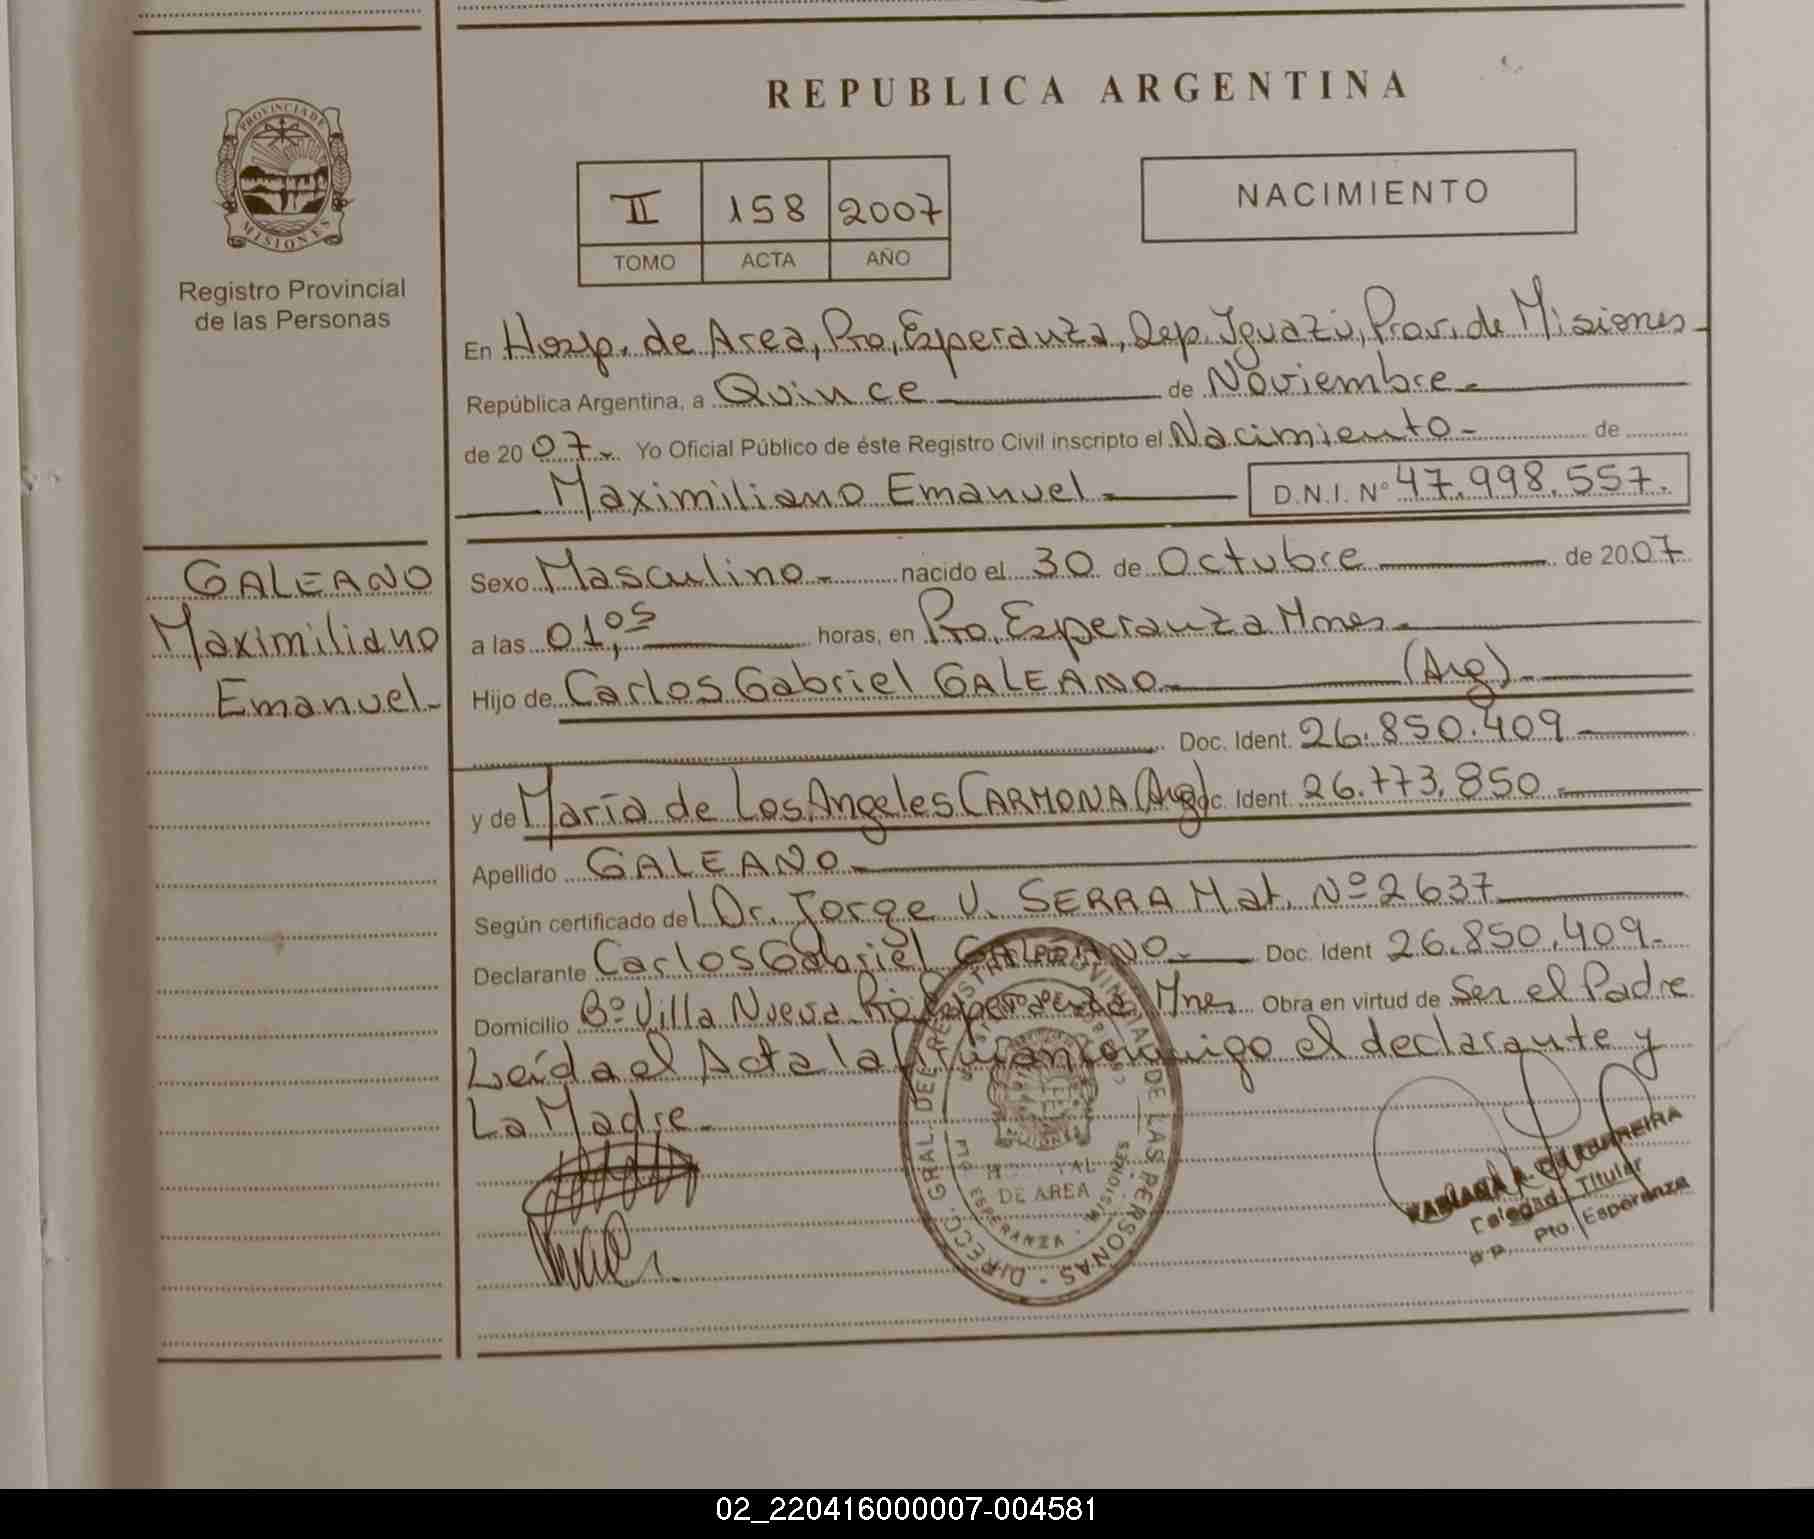 REPUBLICA ARGENTINA
PROVINCIA DE
MISIONES
Registro Provincial
de las Personas
II 158 2007
TOMO ACTA AÑO
NACIMIENTO
En Hosp. de Area, Pto, Esperanza, Dep. Iguazú, Prov. de Misiones
República Argentina, a Quince de Noviembre
de 2007 Yo Oficial Público de éste Registro Civil inscripto el Nacimiento de
Maximiliano Emanuel D.N.I. Nº 47.998.557.
GALEANO
Maximiliano
Emanuel
Sexo Masculino nacido el 30 de Octubre de 2007
a las 01,05 horas, en Pto. Esperanza Mnes.
Hijo de Carlos Gabriel GALEANO (Arg)
Doc. Ident. 26.850.409
y de María de Los Angeles CARMONA (Arg) Doc. Ident 26.773.850
Apellido GALEANO
Según certificado del Dr. Jorge V. SERRA Mat. Nº 2637
Declarante Carlos Gabriel GALEANO Doc. Ident 26.850.409
Domicilio Bº Villa Nueva Pto Esperanza Mnes Obra en virtud de Ser el Padre
Leída el Acta la firman conmigo el declarante y
La Madre
DIRECC. GRAL. DEL REGISTRO PROVINCIAL DE LAS PERSONAS
DE AREA
ESPERANZA - MISIONES
Titular
Pto. Esperanza
02_220416000007-004581